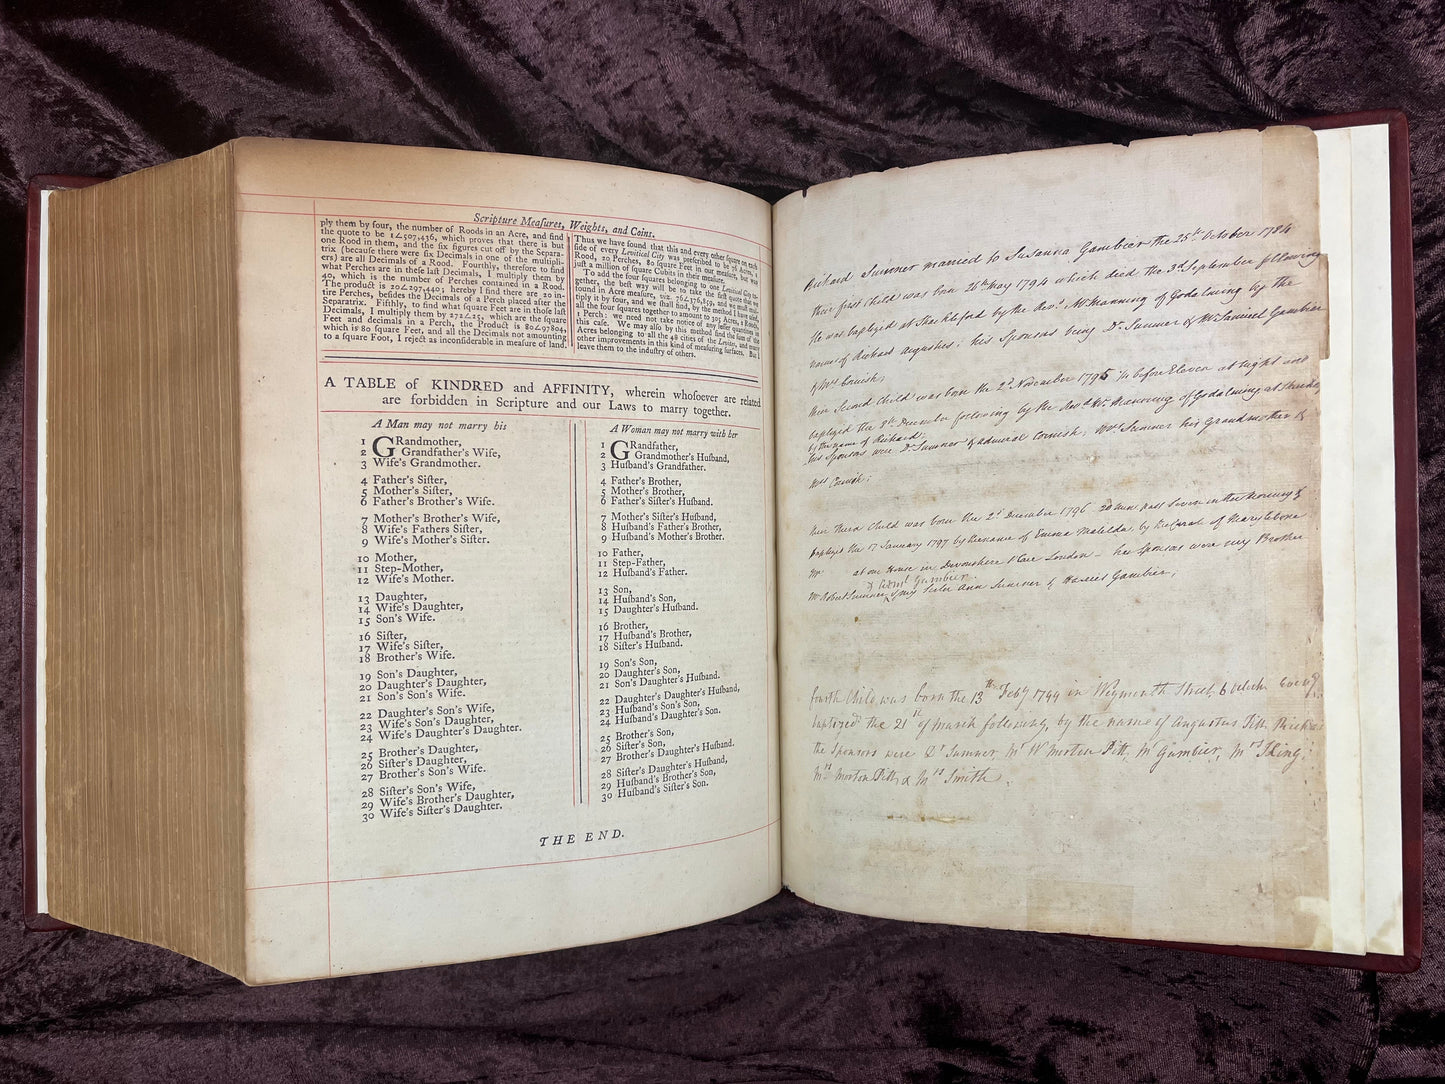 Scripture Meaſures, Weights, and Coins.
ply them by four, the number of Roods in an Acre, and find
the quote to be 1∠507,436, which proves that there is but
one Rood in them, and the ſix figures cut off by the Separa-
trix (becauſe there were ſix Decimals in one of the multipli-
ers) are all Decimals of a Rood. Fourthly, therefore to find
what Perches are in theſe laſt Decimals, I multiply them by
40, which is the number of Perches contained in a Rood.
The product is 20∠297,440; hereby I find there are 20 in-
tire Perches, beſides the Decimals of a Perch placed after the
Separatrix. Fifthly, to find what ſquare Feet are in thoſe laſt
Decimals, I multiply them by 272∠25, which are the ſquare
Feet and decimals in a Perch, the Product is 80∠97804,
which is 80 ſquare Feet, and all the Decimals not amounting
to a ſquare Foot, I reject as inconſiderable in meaſure of land.
Thus we have found that this and every other ſquare on each
ſide of every Levitical City was preſcribed to be 76 Acres, 1
Rood, 20 Perches, 80 ſquare Feet in our meaſure, but was
juſt a million of ſquare Cubits in their meaſure.
To add the four ſquares belonging to one Levitical City to-
gether, the beſt way will be to take the firſt quote that we
found in Acre meaſure, viz. 76∠376,859, and we muſt mul-
tiply it by four, and we ſhall find, by the method I have uſed,
all the four ſquares together to amount to 305 Acres, 2 Roods,
1 Perch: we need not take notice of any leſſer quantities in
this caſe. We may alſo by this method find the ſum of the
Acres belonging to all the 48 cities of the Levites, and many
other improvements in this kind of meaſuring ſurfaces. But I
leave them to the induſtry of others.
A TABLE of KINDRED and AFFINITY, wherein whoſoever are related
are forbidden in Scripture and our Laws to marry together.
A Man may not marry his
1 GRandmother,
2 Grandfather's Wife,
3 Wife's Grandmother.
4 Father's Siſter,
5 Mother's Siſter,
6 Father's Brother's Wife.
7 Mother's Brother's Wife,
8 Wife's Fathers Siſter,
9 Wife's Mother's Siſter.
10 Mother,
11 Step-Mother,
12 Wife's Mother.
13 Daughter,
14 Wife's Daughter,
15 Son's Wife.
16 Siſter,
17 Wife's Siſter,
18 Brother's Wife.
19 Son's Daughter,
20 Daughter's Daughter,
21 Son's Son's Wife.
22 Daughter's Son's Wife,
23 Wife's Son's Daughter,
24 Wife's Daughter's Daughter.
25 Brother's Daughter,
26 Siſter's Daughter,
27 Brother's Son's Wife.
28 Siſter's Son's Wife,
29 Wife's Brother's Daughter,
30 Wife's Siſter's Daughter.
A Woman may not marry with her
1 GRandfather,
2 Grandmother's Huſband,
3 Huſband's Grandfather.
4 Father's Brother,
5 Mother's Brother,
6 Father's Siſter's Huſband.
7 Mother's Siſter's Huſband,
8 Huſband's Father's Brother,
9 Huſband's Mother's Brother.
10 Father,
11 Step-Father,
12 Huſband's Father.
13 Son,
14 Huſband's Son,
15 Daughter's Huſband.
16 Brother,
17 Huſband's Brother,
18 Siſter's Huſband.
19 Son's Son,
20 Daughter's Son,
21 Son's Daughter's Huſband.
22 Daughter's Daughter's Huſband,
23 Huſband's Son's Son,
24 Huſband's Daughter's Son.
25 Brother's Son,
26 Siſter's Son,
27 Brother's Daughter's Huſband.
28 Siſter's Daughter's Huſband,
29 Huſband's Brother's Son,
30 Huſband's Siſter's Son.
THE END.
Richard Sumner married to Susanna Gambier the 25th October 1784
their first Child was born 26th May 1794 which died the 3d September following
He was baptized at Shackleford by the Revd. Mr Manning of Godalming by the
name of Richard Augustus; his Sponsors being Dr Sumner & Mr Samuel Gambier
& Mrs Cornish;
their Second Child was born the 2d November 1795 1/4 before Eleven at Night and
baptized the 8th December following by the Revd Mr Manning of Godalming at
by the name of Richard;
his Sponsors were Dr Sumner & Admiral Cornish; Mrs Sumner his Grandmother &
Mrs Cornish;
their Third Child was born the 2d December 1796 20 minn past Seven in the Morning &
baptized the 17 January 1797 by the name of Emma Matilda, by the Curat of Marylebone
Mr at our House in Devonshire Place London - her Sponsors were my Brother
& Saml Gambier
Mr Robert Sumner & my Sister Ann Sumner & Harriet Gambier;
fourth Child was born the 13th Feby 1799 in Weymouth Street, 6 oclock
baptized the 21st of March following, by the name of Augustus Pitt
the Sponsors were Dr Sumner, Mr W Morton Pitt, Mr Gambier, Mrs
Mrs Morton Pitt & Mrs Smith.